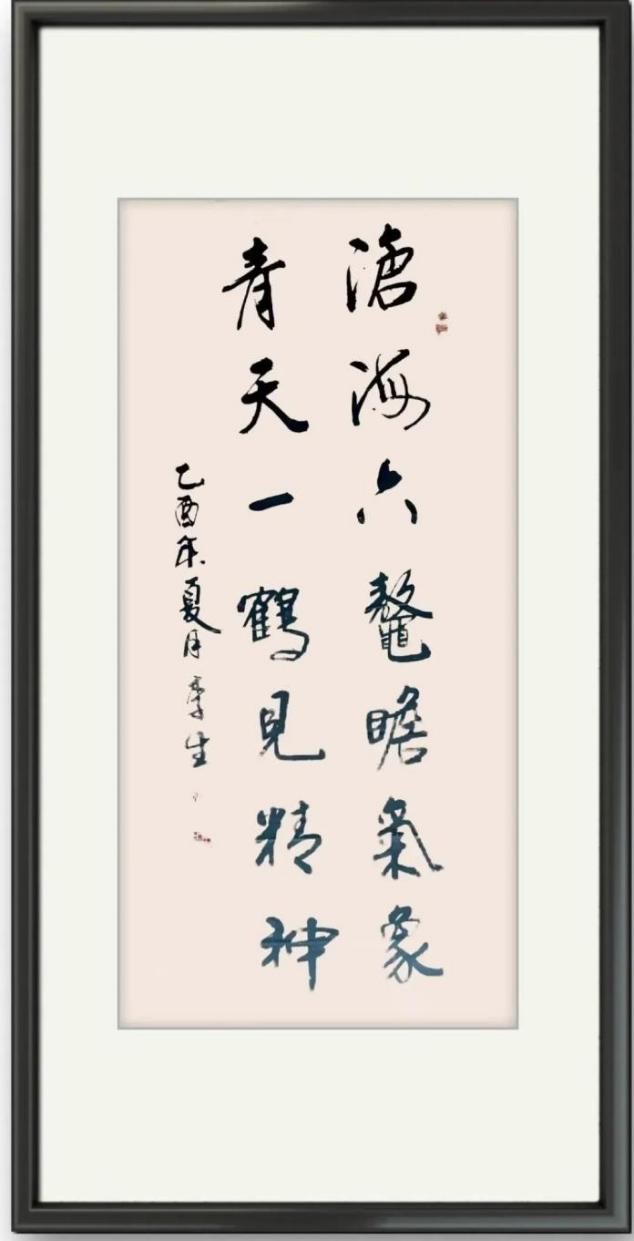 滄海六鼇瞻氣象
青天一鶴見精神
乙酉年夏月李生